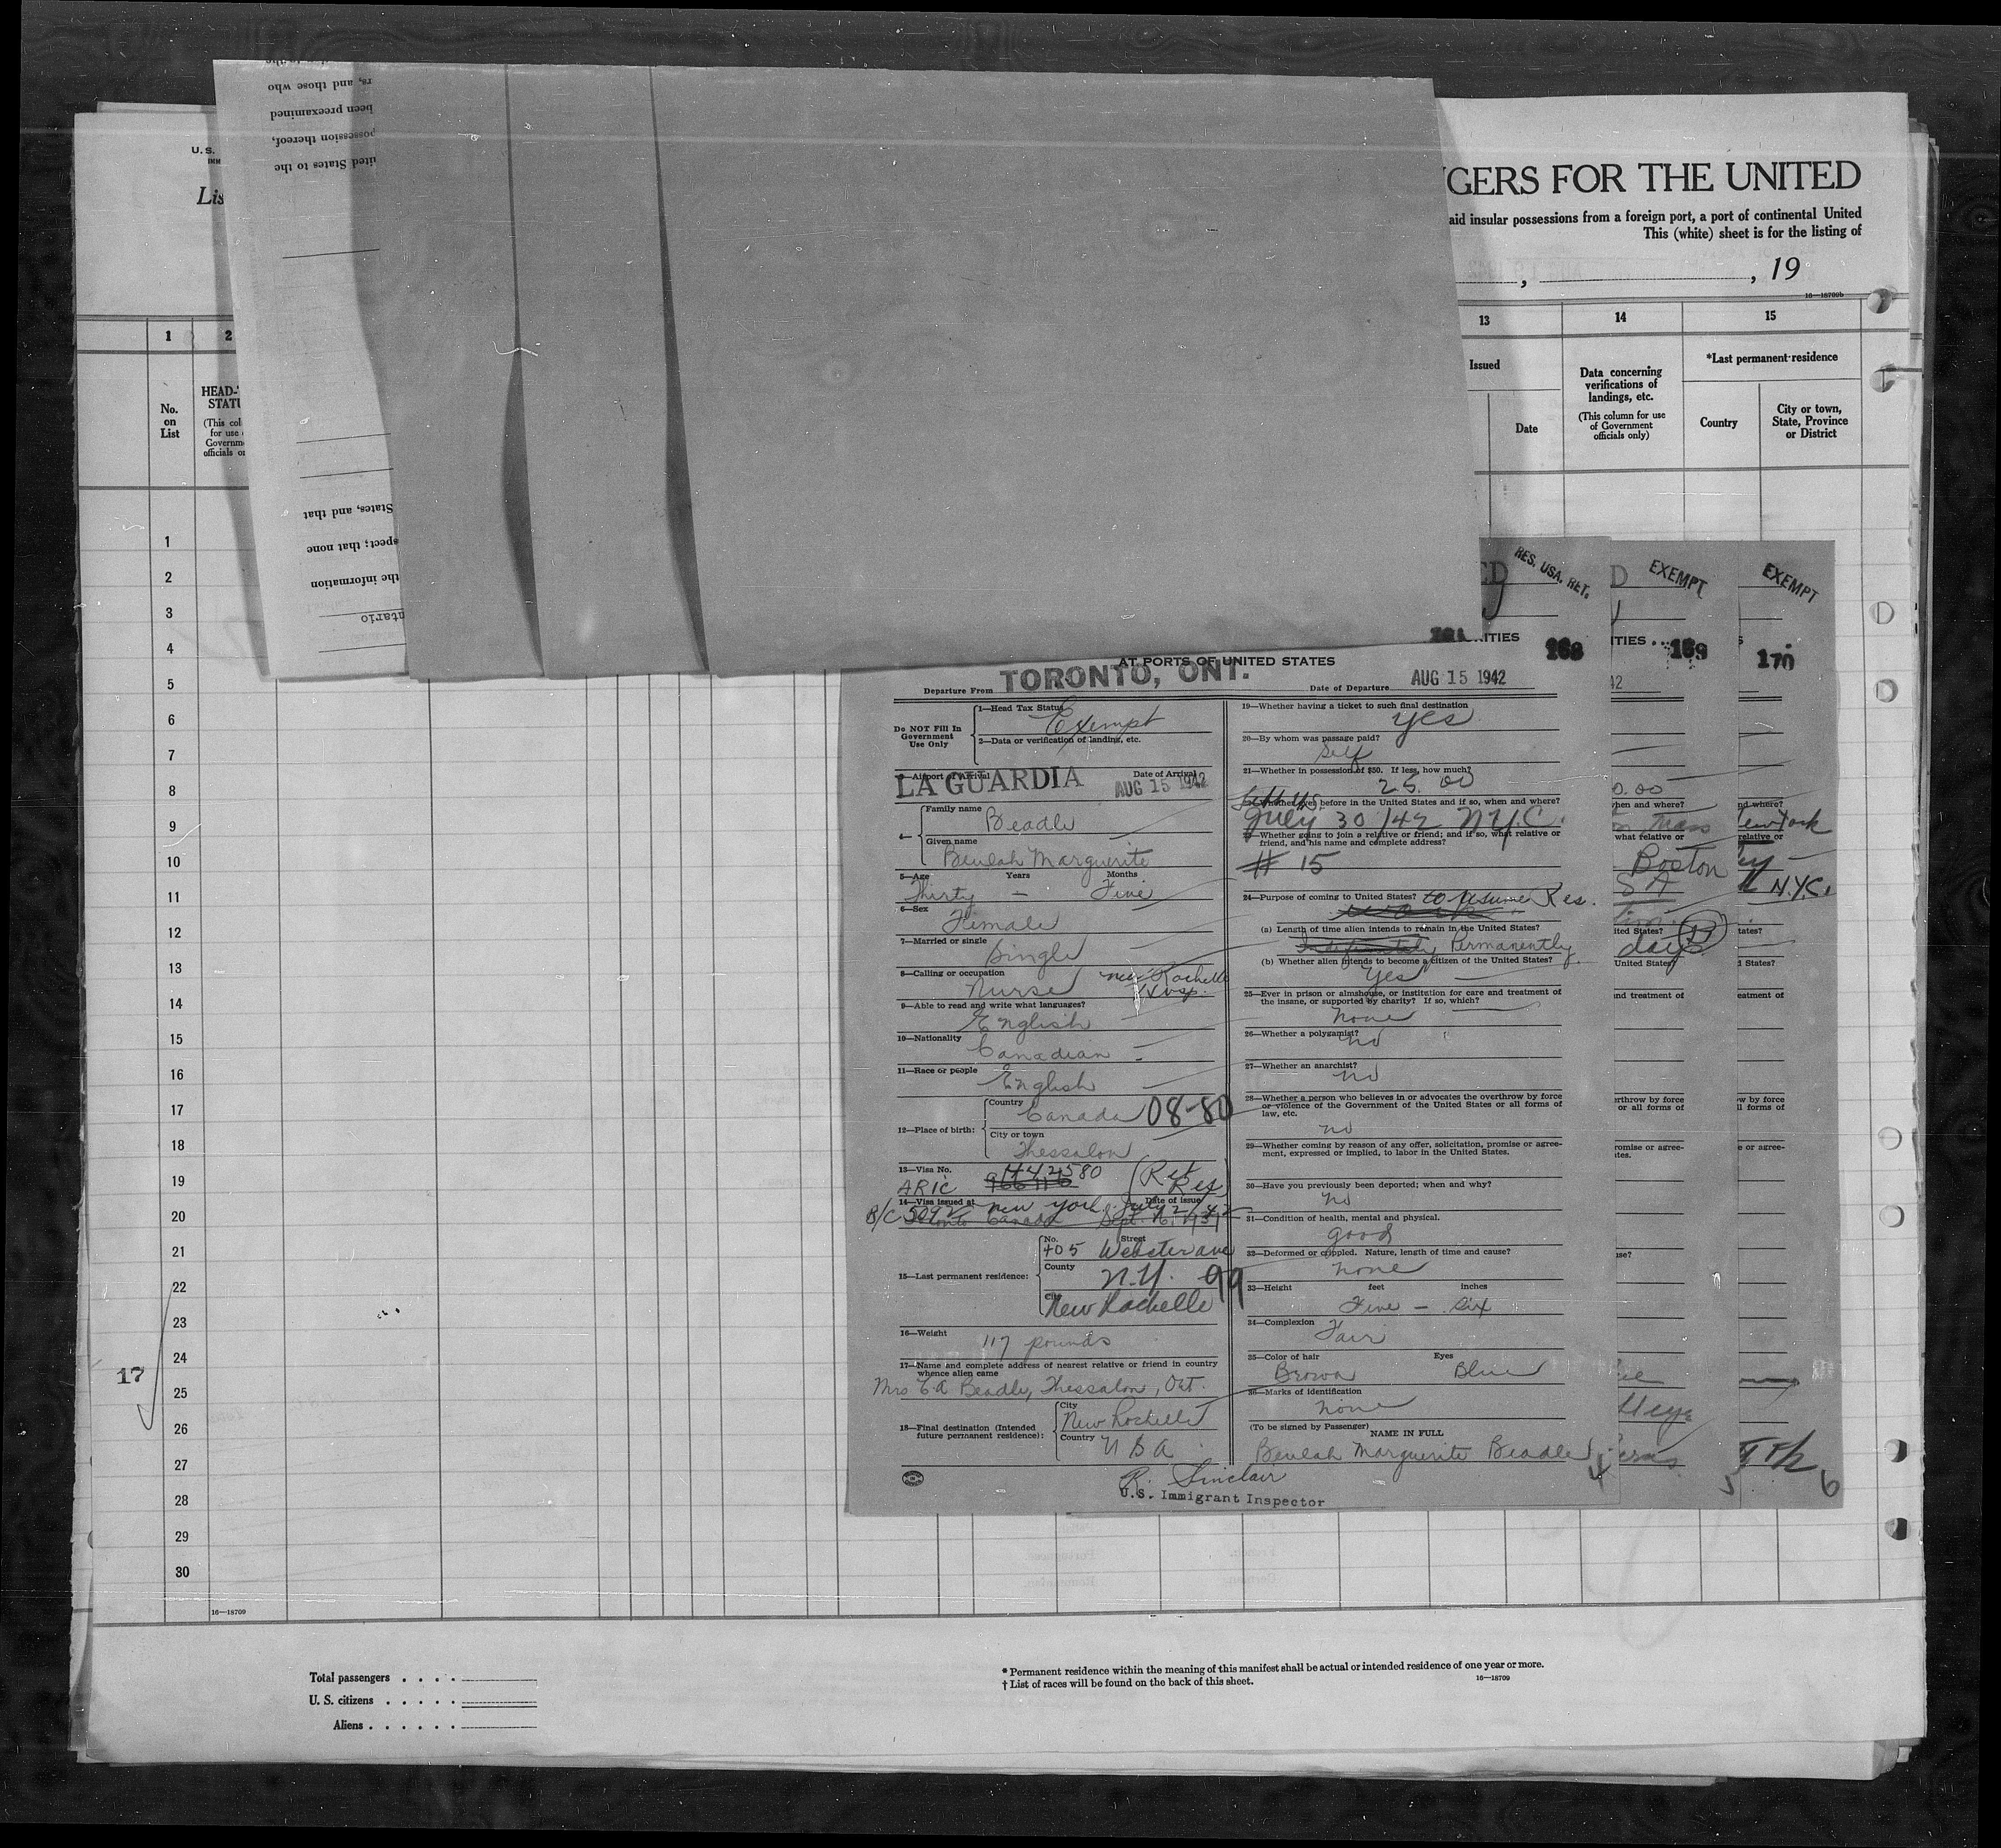 U. S.
Lis
NGERS FOR THE UNITED
aid insular possessions from a foreign port, a port of continental United
This (white) sheet is for the listing of
, , 19
16—18709b
1 2 13 14 15
No.
on
List
HEAD-
STATU
(This col
for use
Governm
officials o
Issued
Date
Data concerning
verifications of
landings, etc.
(This column for use
of Government
officials only)
*Last permanent residence
Country
City or town,
State, Province
or District
ra, and those who
been preexamined
possession thereof,
ited States to the
States, and that
spect; that none
the information
ntario
RES. USA. RET.
EXEMPT
EXEMPT
168
169
170
AT PORTS OF UNITED STATES
Departure From TORONTO, ONT.
Date of Departure AUG 15 1942
Do NOT Fill In
Government
Use Only
1—Head Tax Status
Exempt
2—Data or verification of landing, etc.
3—Airport of Arrival Date of Arrival
LA GUARDIA AUG 15 1942
4—
Family name
Beadle
Given name
Beulah Marguerite
5—Age Years Months
Thirty — Five
6—Sex
Female
7—Married or single
Single
8—Calling or occupation
Nurse New Rochelle Hosp.
9—Able to read and write what languages?
English
10—Nationality
Canadian
11—Race or people
English
12—Place of birth:
Country
Canada 08-80
City or town
Thessalon
13—Visa No. 442580
ARIC 966116 (Ret Res)
14—Visa issued at New York Date of issue July 2/42
B/C 5092 Toronto Canada Sept.
15—Last permanent residence:
No. Street
405 Webster ave
County
N.Y. 99
City
New Rochelle
16—Weight
117 pounds
17—Name and complete address of nearest relative or friend in country
whence alien came
Mrs C.A. Beadle, Thessalon, Ont.
18—Final destination (Intended
future permanent residence):
City
New Rochelle
Country
U S A
19—Whether having a ticket to such final destination
yes
20—By whom was passage paid?
Self
21—Whether in possession of $50. If less, how much?
25.00
22—Whether ever before in the United States and if so, when and where?
July 30/42 N.Y.C.
23—Whether going to join a relative or friend; and if so, what relative or
friend, and his name and complete address?
# 15
24—Purpose of coming to United States? to resume Res.
work
(a) Length of time alien intends to remain in the United States?
Indefinitely Permanently
(b) Whether alien intends to become a citizen of the United States?
Yes
25—Ever in prison or almshouse, or institution for care and treatment of
the insane, or supported by charity? If so, which?
none
26—Whether a polygamist?
no
27—Whether an anarchist?
no
28—Whether a person who believes in or advocates the overthrow by force
or violence of the Government of the United States or all forms of
law, etc.
no
29—Whether coming by reason of any offer, solicitation, promise or agree-
ment, expressed or implied, to labor in the United States.
30—Have you previously been deported; when and why?
no
31—Condition of health, mental and physical.
good
32—Deformed or crippled. Nature, length of time and cause?
none
33—Height feet inches
Five — six
34—Complexion
Fair
35—Color of hair Eyes
Brown Blue
36—Marks of identification
none
(To be signed by Passenger)
NAME IN FULL
Beulah Marguerite Beadle
R. Sinclair
U.S. Immigrant Inspector
ITIES
42
0.00
hen and where?
Mass
what relative or
Boston
S A
ited States?
days
United States?
nd treatment of
erthrow by force
or all forms of
romise or agree-
tes.
use?
nd where?
New York
relative or
N.Y.C.
tates?
d States?
eatment of
w by force
ll forms of
e or agree-
5
6
1
2
3
4
5
6
7
8
9
10
11
12
13
14
15
16
17
18
19
20
21
22
23
24
17
25
26
27
28
29
30
16—18709
Total passengers . . . .
U. S. citizens . . . . .
Aliens . . . . . .
* Permanent residence within the meaning of this manifest shall be actual or intended residence of one year or more.
† List of races will be found on the back of this sheet.
16—18709